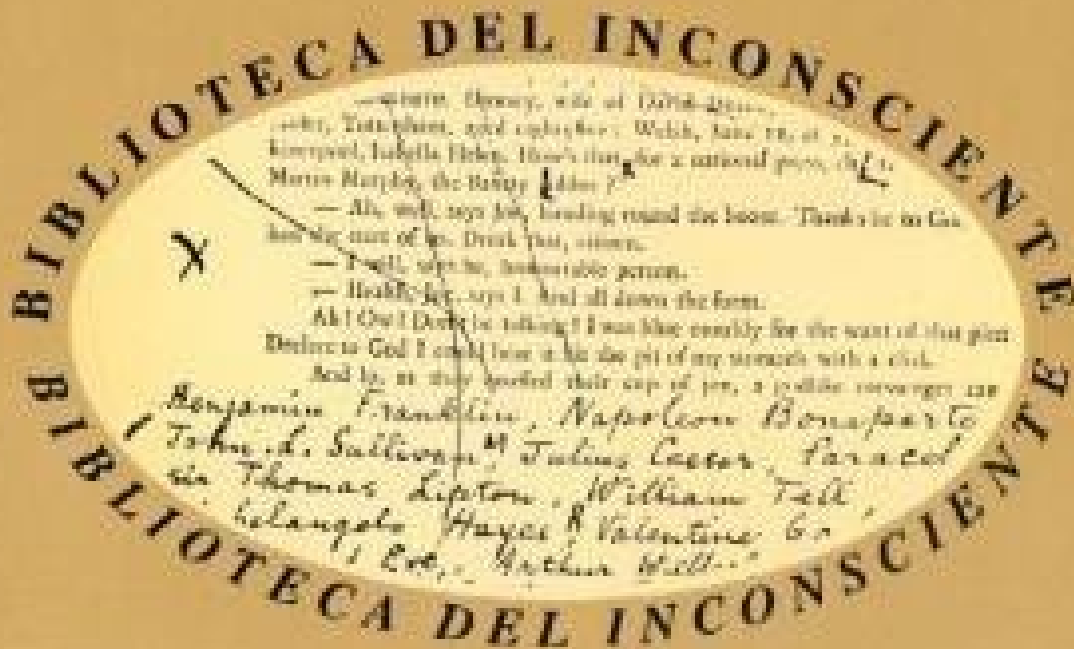 BIBLIOTECA DEL INCONSCIENTE
wife of
Welsh,
Liverpool, Isabella Helen. How's that for a national press,
Martin Murphy, the Bantry
— Ah, well, says Joe, handing round the boose. Thanks be to God
had the start of us. Drink that, citizen.
— I will, says he, honourable person.
— Health, Joe, says I. And all down the form.
Ah! Ow! Don't be talking! I was blue mouldy for the want of that pint
Declare to God I could hear it hit the pit of my stomach with a click.
And lo, as they quaffed their cup of joy, a godlike messenger
Benjamin Franklin, Napoleon Bonaparte
John L. Sullivan, M Julius Caesar, Paracel
sir Thomas Lipton, William Tell,
helangelo Hayes, R Valentine Gr
Eve, Arthur Well
BIBLIOTECA DEL INCONSCIENTE